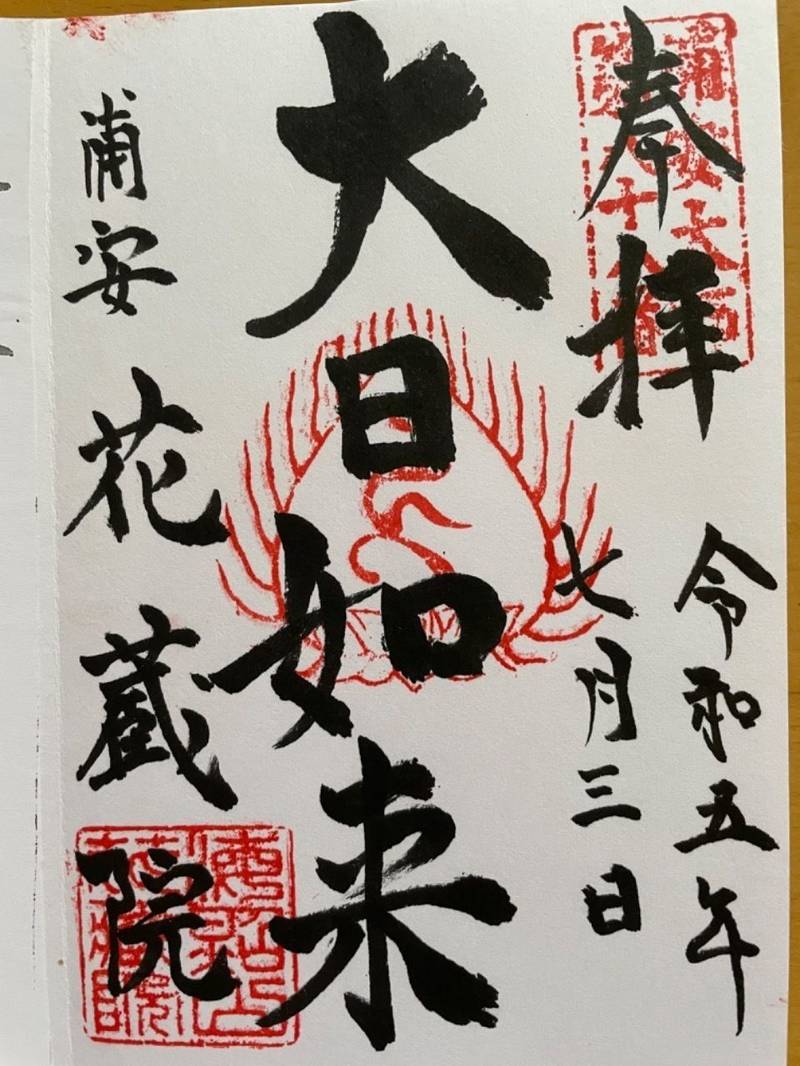 奉拝
令和五年
七月三日
大日如来
浦安
花蔵院